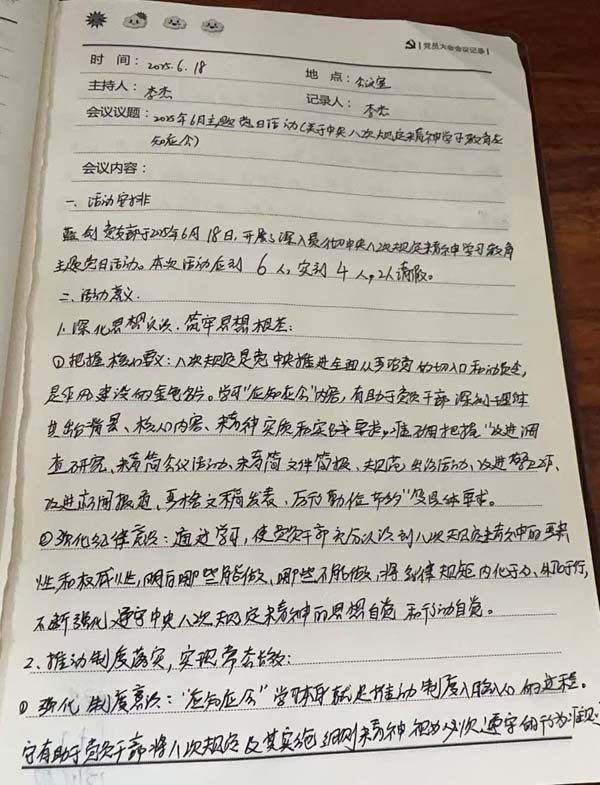 党员大会会议记录
时 间：2025.6.18
地 点：会议室
主持人：李杰
记录人：李杰
会议议题：2025年6月主题党日活动(关于中央八次规定精神学习教育应
知应会)
会议内容：
一、活动安排
蓝剑党支部于2025年6月18日，开展了深入贯彻中央八次规定精神学习教育
主题党日活动。本次活动应到6人，实到4人，2人请假。
二、活动意义.
1.深化思想认识、筑牢思想根基：
①把握核心要义：八次规定是党中央推进全面从严治党的切入口和动员令，
是作风建设的金色名片。学习"应知应会"内容，有助于党员干部深刻理解
其出台背景、核心内容、精神实质和实践要求，准确把握"改进调
查研究、精简会议活动、精简文件简报、规范出访活动、改进警卫工作、
改进新闻报道、严格文稿发表、厉行勤俭节约"等具体要求。
②强化纪律意识：通过学习，使党员干部充分认识到八次规定精神的严肃
性和权威性，明白哪些能做、哪些不能做，将纪律规矩内化于心、外化于行，
不断强化遵守中央八次规定精神的思想自觉和行动自觉。
2、推动制度落实，实现常态长效：
①强化制度意识："应知应会"学习本身就是推动制度入脑入心的过程。
它有助于党员干部将八次规定及其实施细则精神视为必须遵守的行为准则